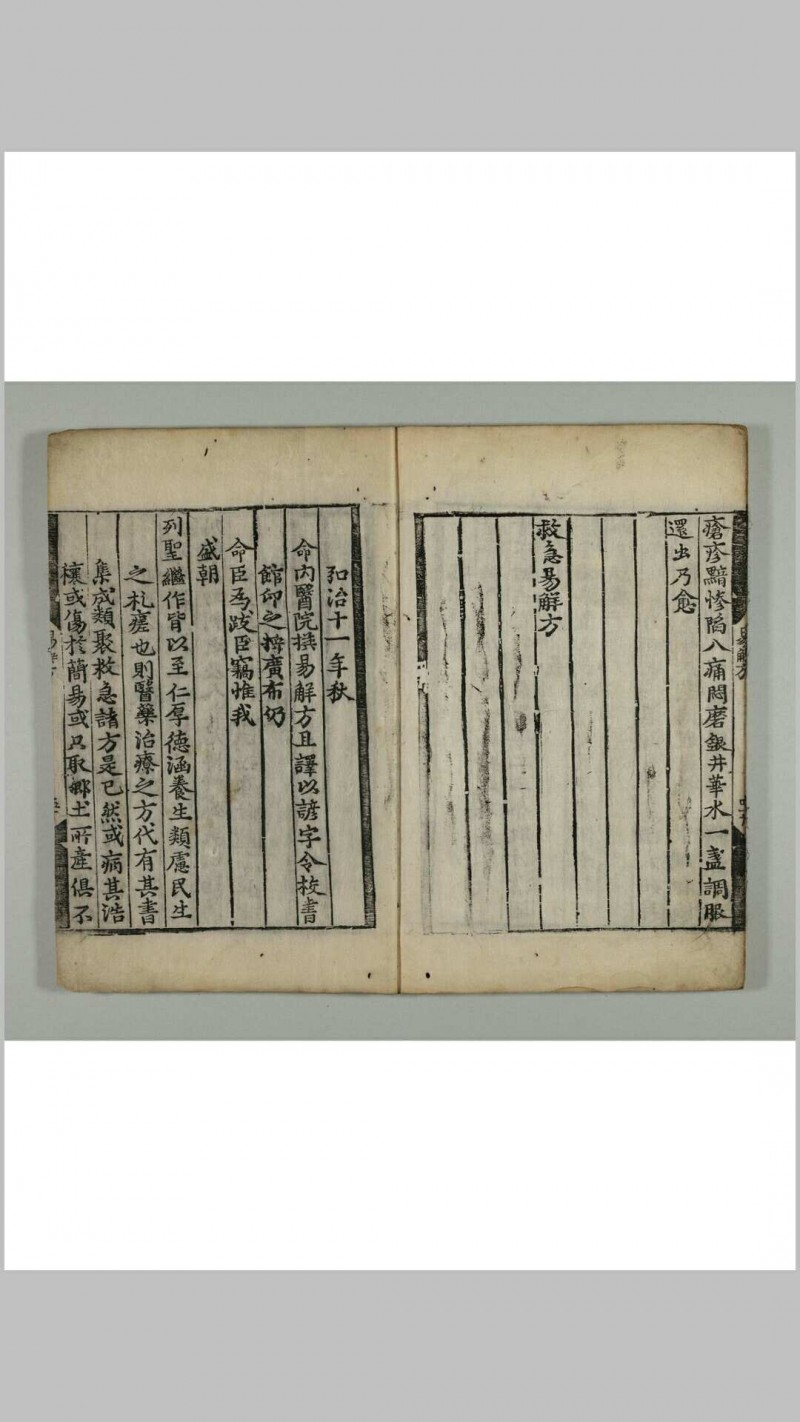 瘡疹黯慘陷八痛悶磨銀井華水一盞調服
還出乃愈
救急易解方
弘治十一年秋
命內醫院撰易解方且譯以諺字令校書
館印之將廣布仍
命臣爲跋臣竊惟我
盛朝
列聖繼作皆以至仁厚德涵養生類慮民生
之札瘥也則醫藥治療之方代有其書
集成類聚救急諸方是已然或病其浩
穰或傷於簡易或只取鄕土所產俱不